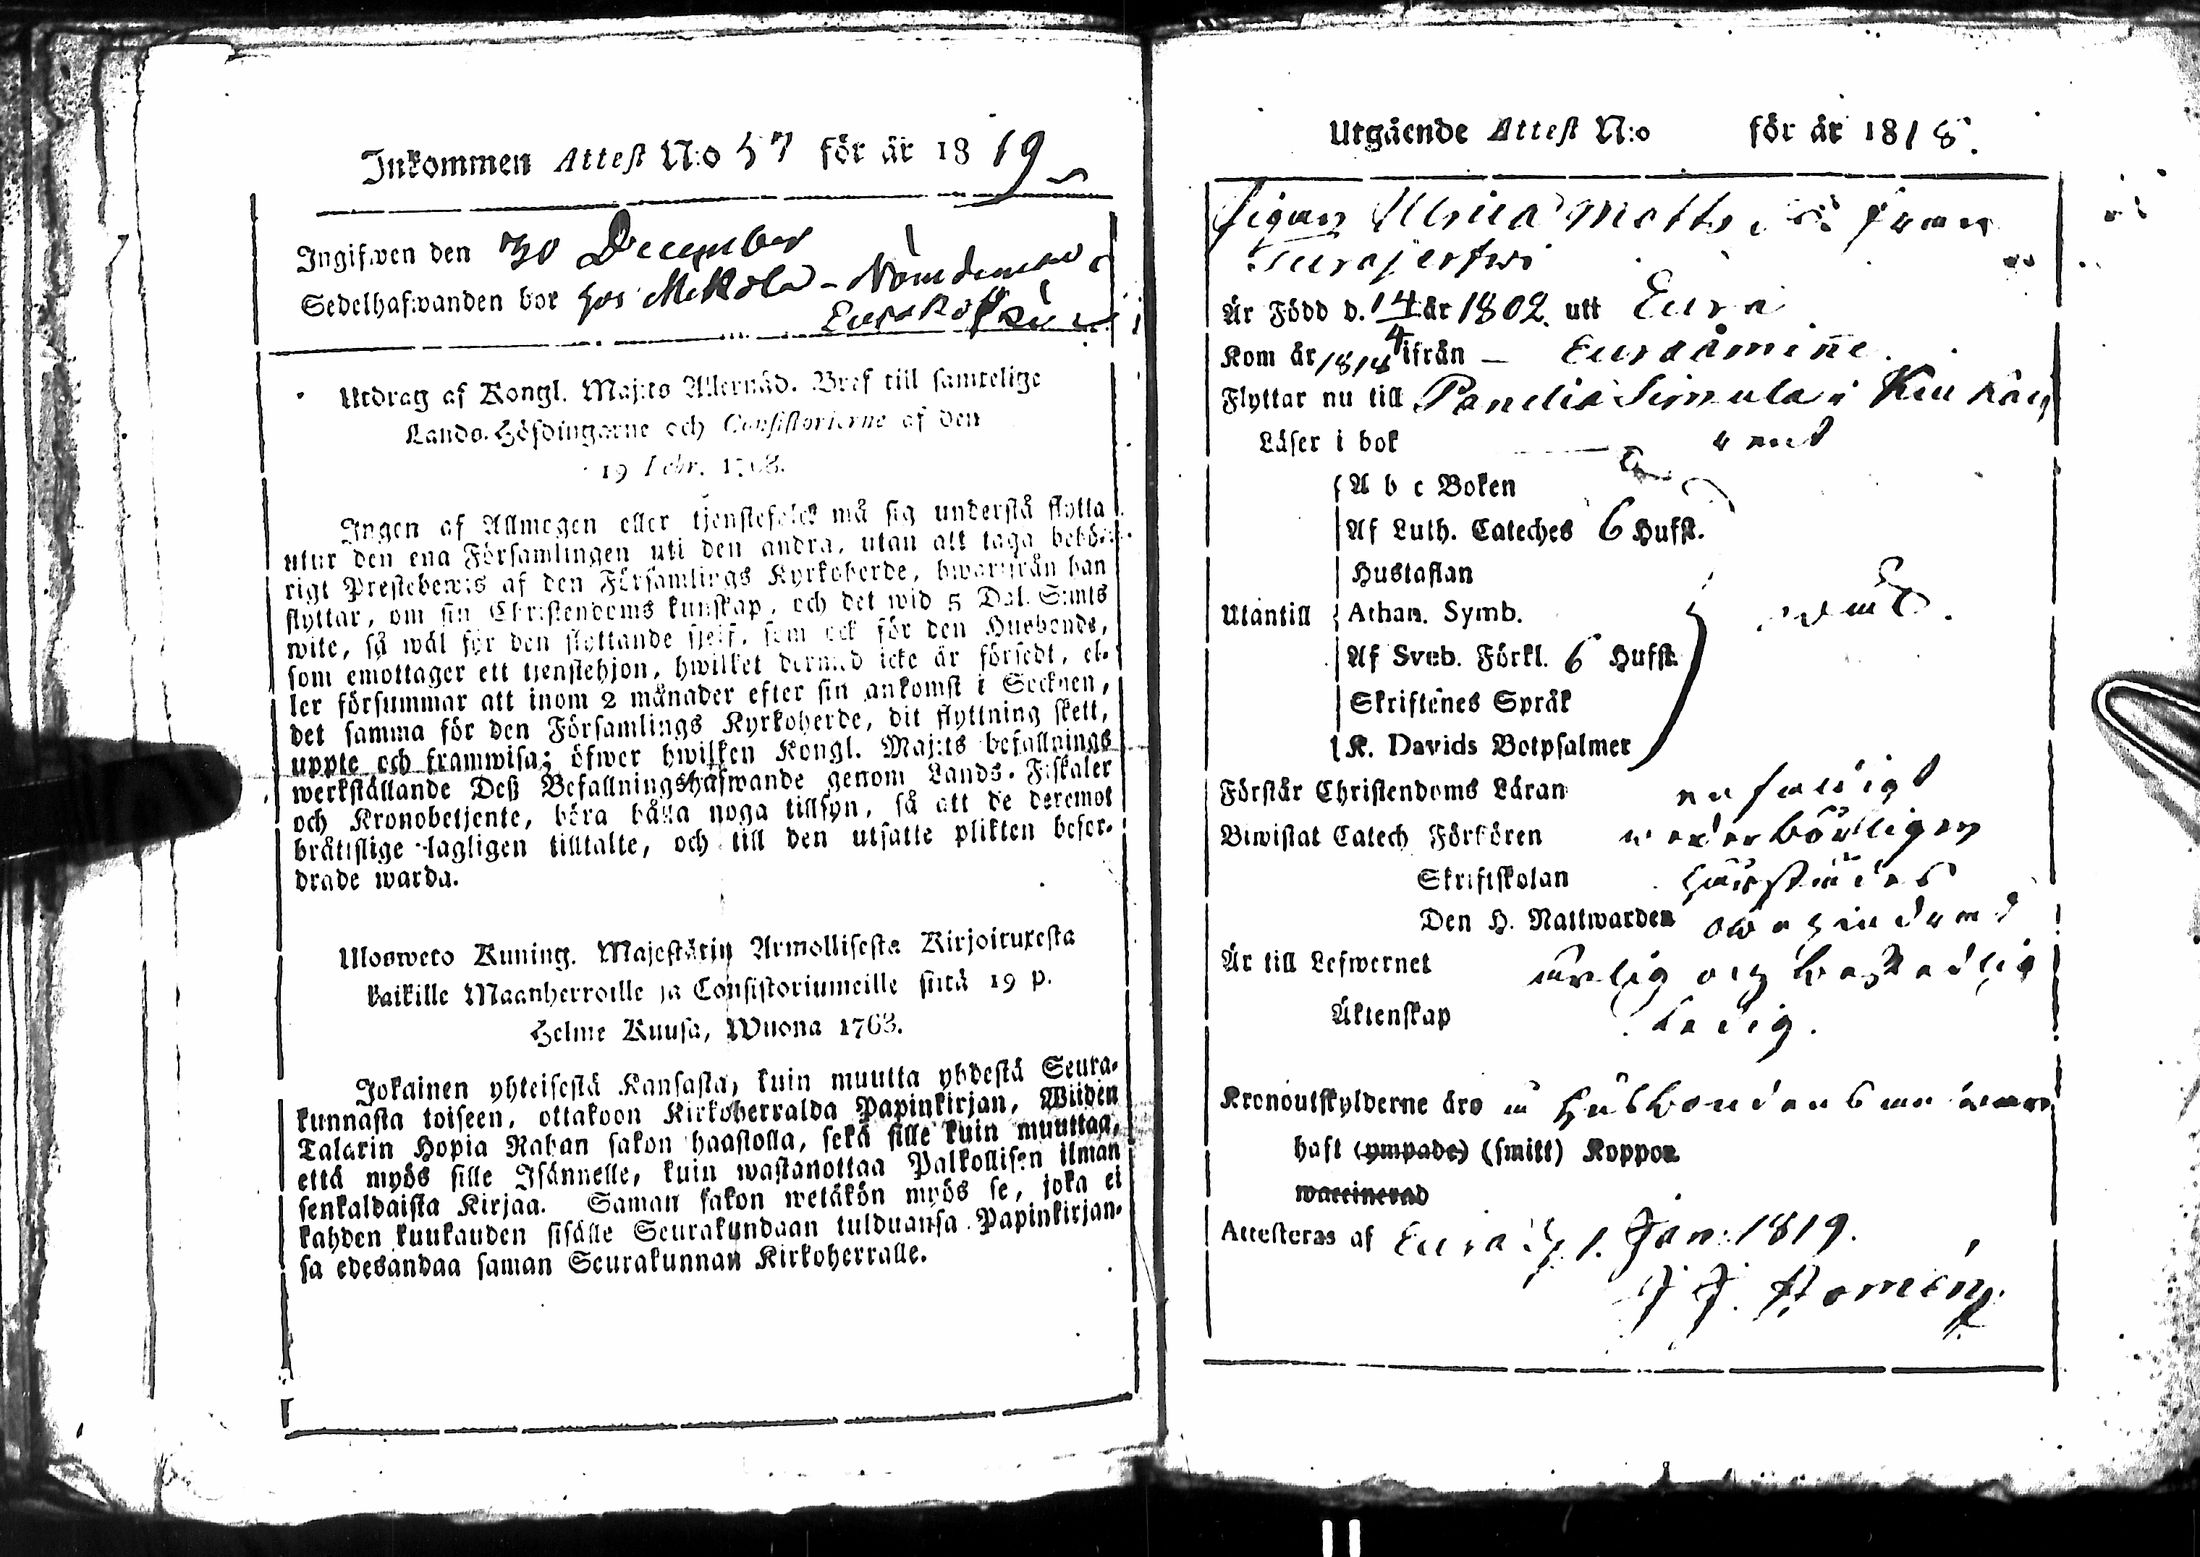 Inkommen Attest N:o 57 för år 1819
Ingifwen den 30 December
Sedelhafwanden bor hos Mikola - Nämdeman
Utdrag af Kongl. Maj:ts Allernåd. Bref till samtelige
Lands-Höfdingarne och Consistorierne af den
19 Febr. 1763.
Ingen af Allmogen eller tjenstefolck må sig understå flytta
utur den ena Församlingen uti den andra, utan att taga behö-
rigt Prestebewis af den Församlings Kyrkoherde, hwarifrån han
flyttar, om sin Christendoms kunskap, och det wid 5 Dal. S:mts
wite, så wäl för den flyttande sjelf, som ock för den Husbonde,
som emottager ett tjenstehjon, hwilket dermed icke är försedt, el-
ler försummar att inom 2 månader efter sin ankomst i Socknen,
det samma för den Församlings Kyrkoherde, dit flyttning skett,
uppte och framwisa; öfwer hwilken Kongl. Maj:ts befallnings
werkställande Deß Befallningshafwande genom Lands-Fiskaler
och Kronobetjente, böra hålla noga tillsyn, så att de deremot
bråttslige lagligen tilltalte, och till den utsatte plikten befor-
drade warda.
Ulosweto Kuning. Majestätin Armollisesta Kirjoituxesta
kaikille Maanherroille ja Consistoriumeille siitä 19 p.
Helme Kuusa, Wuona 1763.
Jokainen yhteisestä Kansasta, kuin muutta yhdestä Seura-
kunnasta toiseen, ottakoon Kirkoherralda Papinkirjan, Wiiden
Talarin Hopia Rahan sakon haastolla, sekä sille kuin muuttaa,
että myös sille Isännelle, kuin wastanottaa Palkollisen ilman
senkaldaista Kirjaa. Saman sakon wetäkön myös se, joka ei
kahden kuukauden sisälle Seurakundaan tulduansa Papinkirjan-
sa edesandaa saman Seurakunnan Kirkoherralle.
Utgående Attest N:o för år 1818.
Pigan Ulrica Matts från
Turajerfwi
Är Född d. 14/4 år 1802. utt Eura
Kom år 1818 ifrån — Euraåminne.
Flyttar nu till Panelia Simula i Kiukais
Läser i bok rent
A b c Boken
Af Luth. Cateches 6 Hufst.
Hustaflan
Utantill Athan. Symb.
Af Sveb. Förkl. 6 Hufst.
Skriftenes Språk
K. Davids Botpsalmer
Förstår Christendoms Läran enfaldigt
Biwistat Catech Förhören wederbörligen
Skriftskolan härstädes
Den H. Nattwarden oberyktad
Är till Lefwernet ärlig och beskedlig
Äktenskap Ledig.
Kronoutskylderne äro i Husbondens
haft (ympade) (smitt) Koppor
waccinerad
Attesteras af Eura d. 1. Jan: 1819.